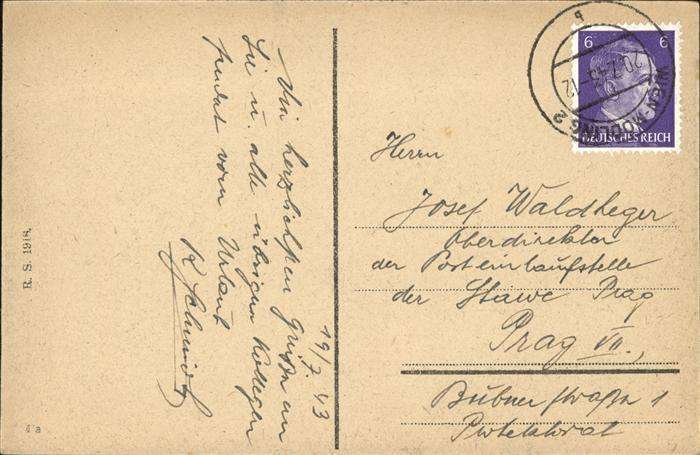 19/7. 43
Die herzlichsten Grüße an
Sie u. alle übrigen Kollegen
sendet vom Urlaub
K. Schmidt
R. S. 1918.
4 a
6 6
DEUTSCHES REICH
WIEN-MÖDLING 2
20.7.43-12
Herrn
Josef Waldheger
Oberdirektor
der Posteinlaufstelle
der Stawe Prag
Prag VII.,
Bubner Straße 1
Protektorat